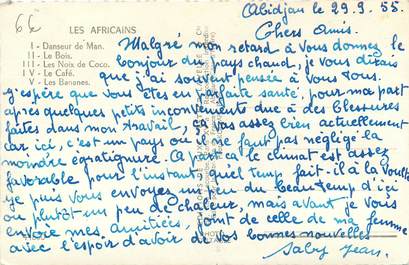 66
LES AFRICAINS
I - Danseur de Man.
II - Le Bois.
III - Les Noix de Coco.
IV - Le Café.
V - Les Bananes.
Abidjan le 29.9.55.
Chers Amis.
Malgré mon retard à vous donner le
bonjour du pays chaud, je vous dirais
que j'ai souvent pensée à vous tous.
j'espère que vous êtes en parfaite santé, pour ma part
après quelques petits inconvénients due à des Blessures
faites dans mon travail, ça vas assez bien actuellement
car ici, c'est un pays ou il ne faut pas négligé la
moindre égratignure. A part ça le climat est assez
favorable pour l'instant, quel temps fait-il à la Voulte
je puis vous envoyez un peu du beau temps d'ici
ou plutôt un peu de chaleur, mais avant je vous
envoie mes Amitiés, joint de celle de ma femme
avec l'espoir d'avoir de vos bonnes nouvelles
Jean.